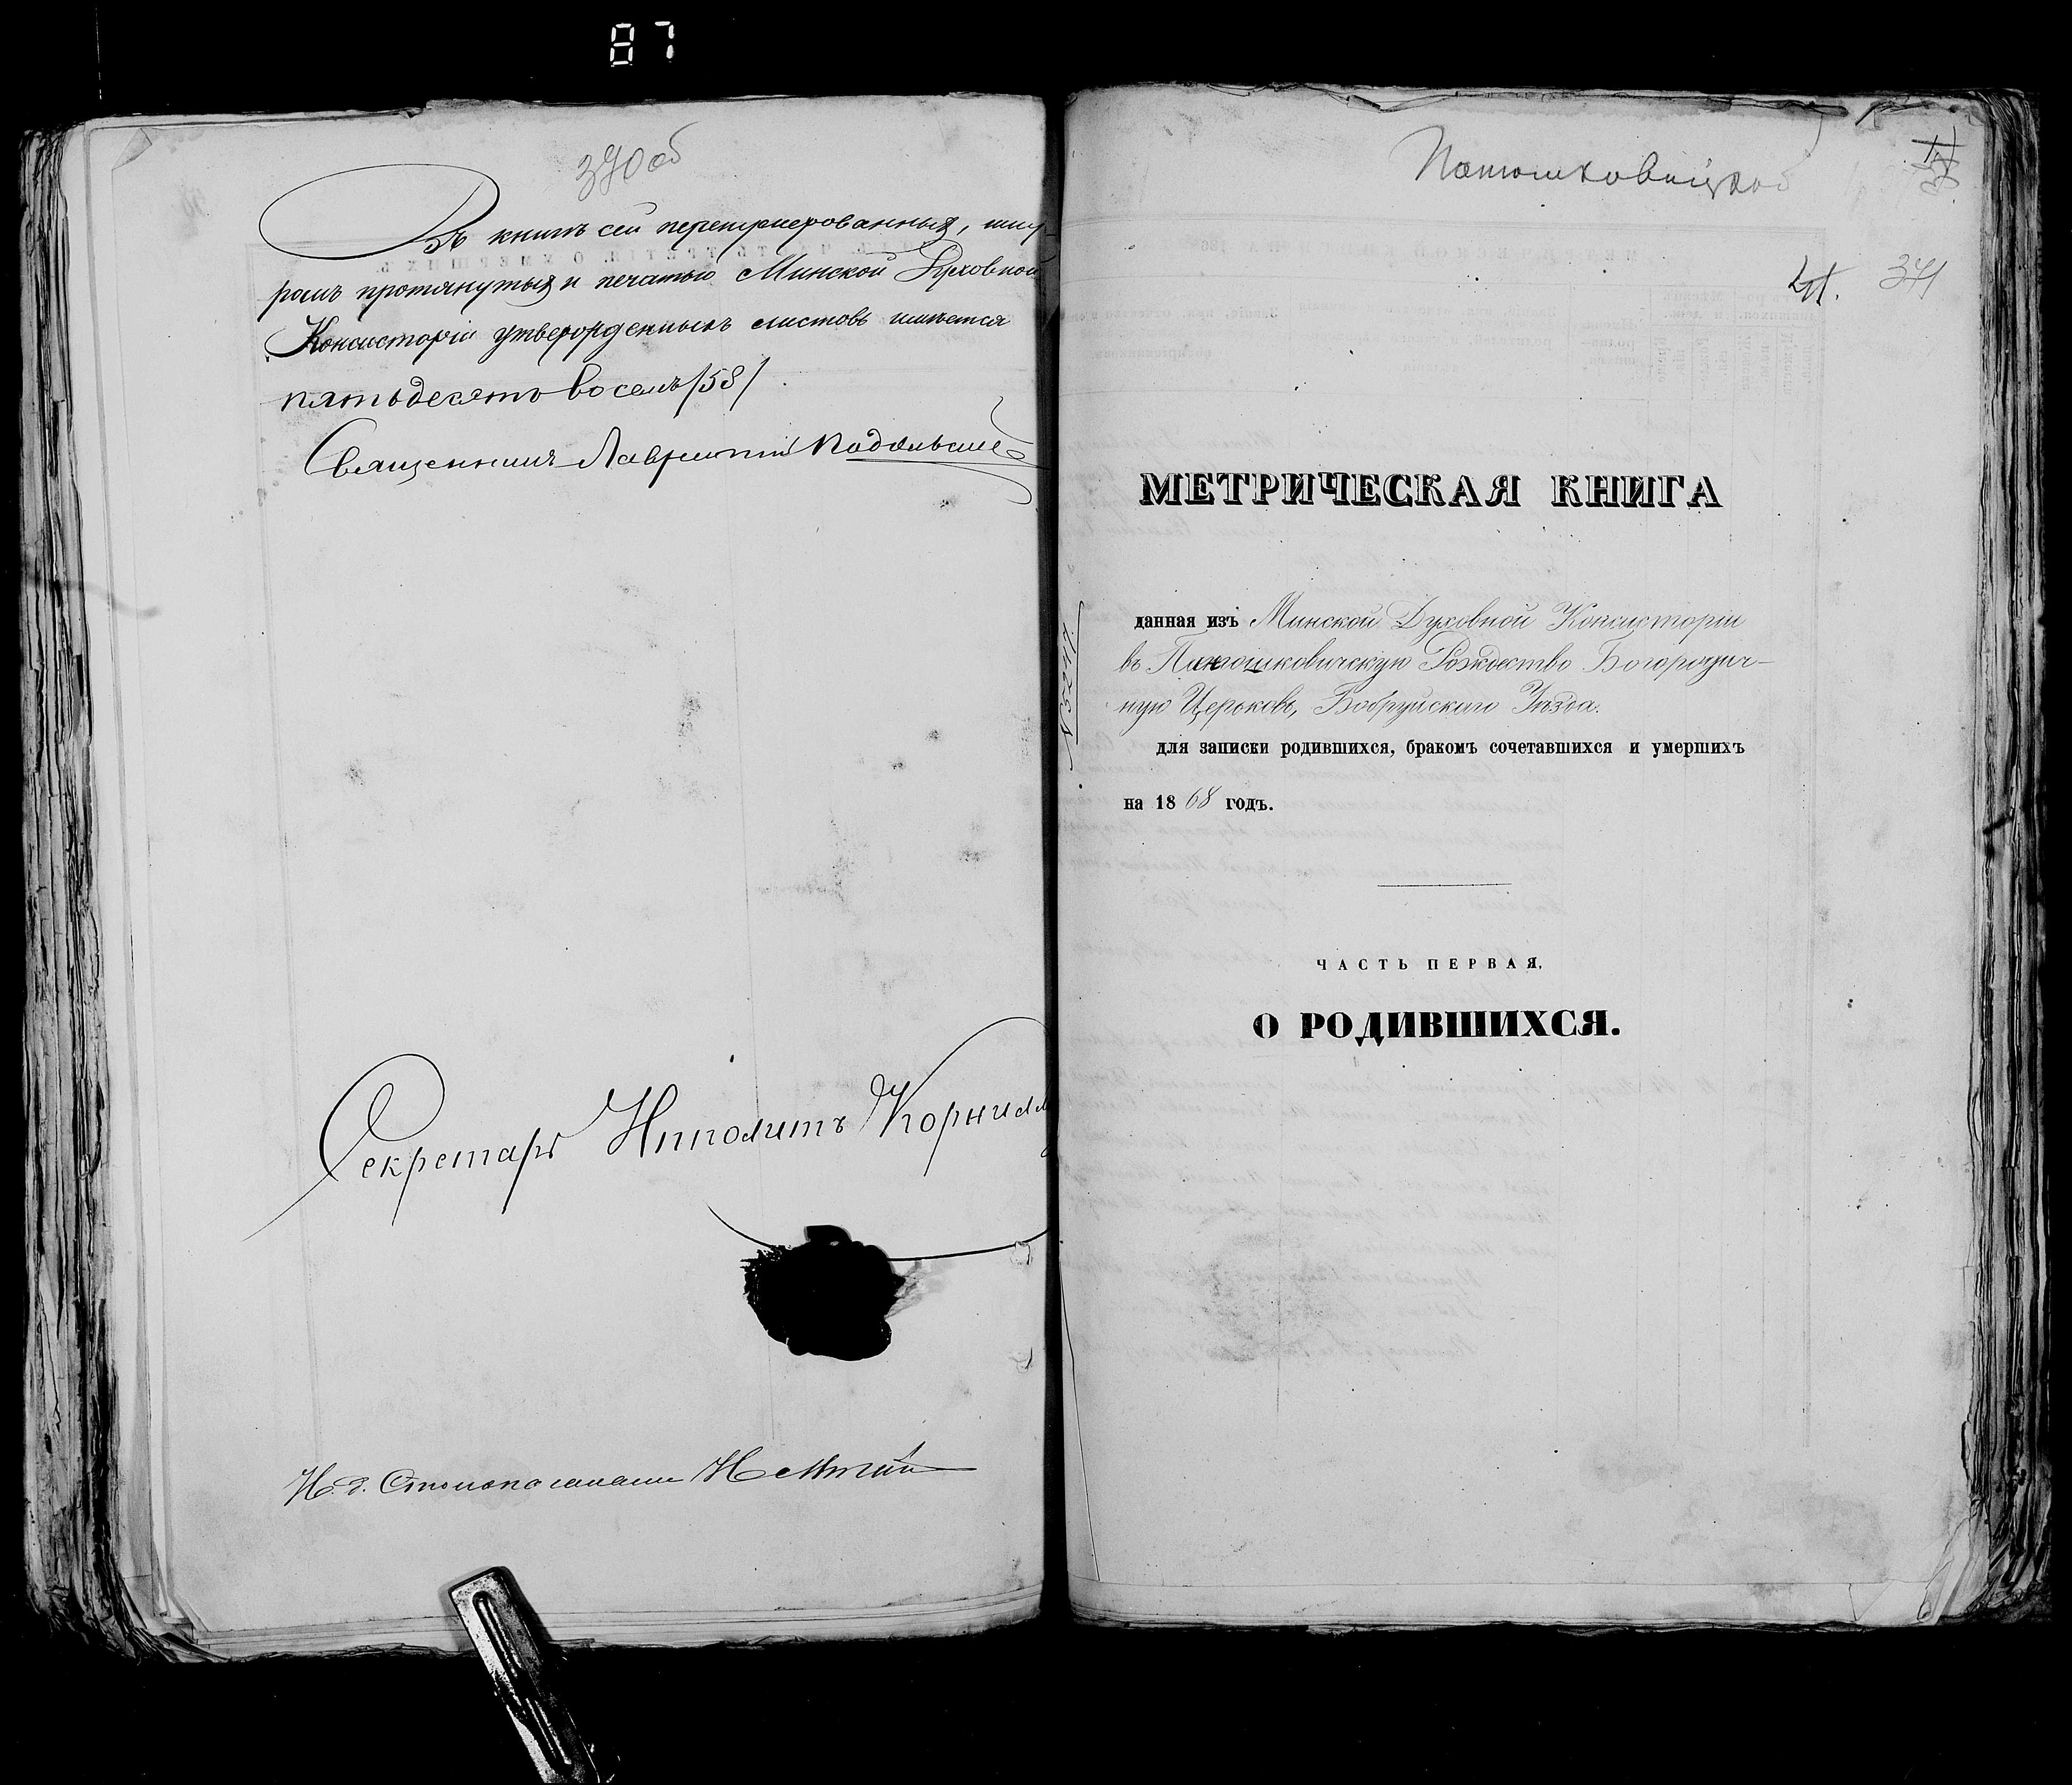 87
370 об
Въ книгѣ сей перенумерованныхъ, шну-
ромъ протянутыхъ и печатью Минской Духовной
Консисторіи утвержденныхъ листовъ имѣется
пятьдесятъ восемь /58/
Священникъ Лаврентій Подольскій
Секретарь Ипполитъ
И. д. Столоначальника
371
МЕТРИЧЕСКАЯ КНИГА
данная изъ Минской Духовной Консисторіи
въ Панюшковичскую Рождество Богородич-
ную Церковь, Бобруйскаго Уѣзда.
для записки родившихся, бракомъ сочетавшихся и умершихъ
на 1868 годъ.
ЧАСТЬ ПЕРВАЯ,
О РОДИВШИХСЯ.